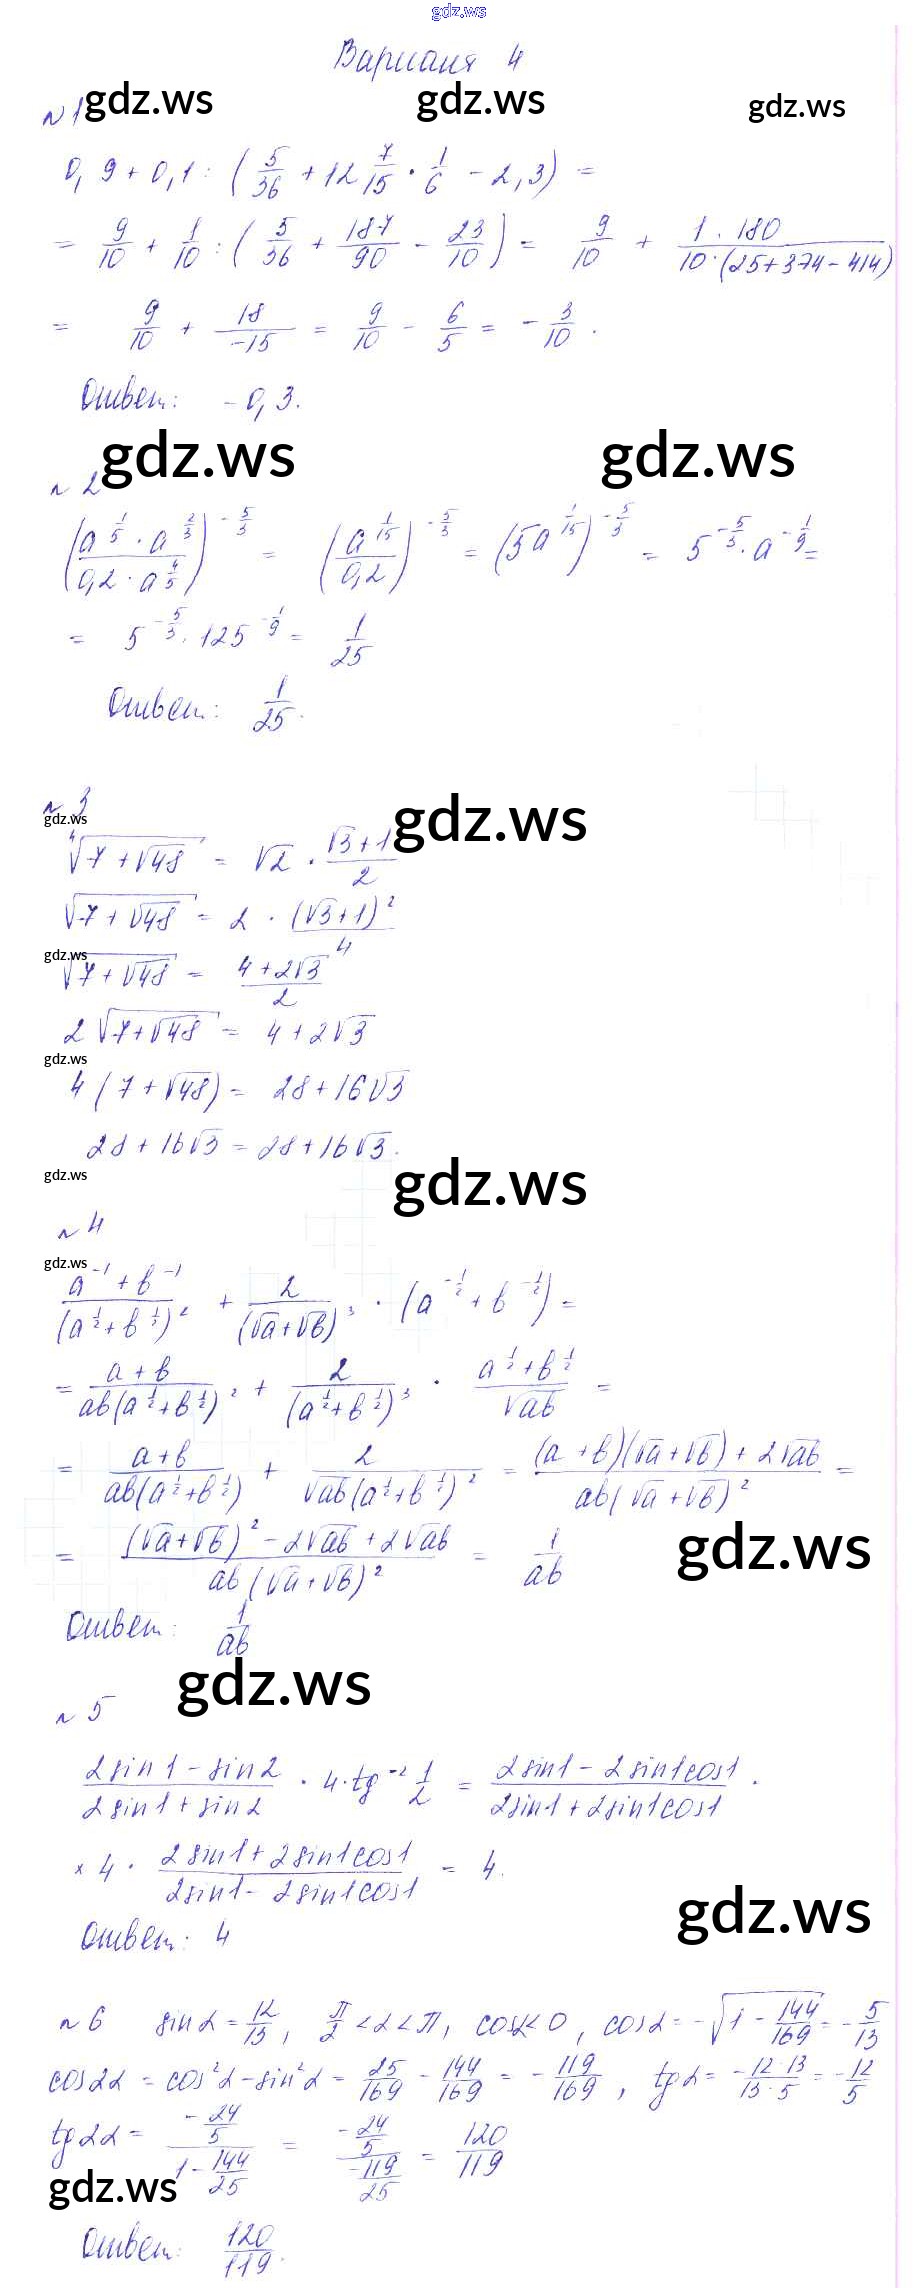 gdz.ws
Вариант 4
gdz.ws gdz.ws gdz.ws
№ 1
0,9 + 0,1 : (5/36 + 12 7/15 · 1/6 - 2,3) =
= 9/10 + 1/10 : (5/36 + 187/90 - 23/10) = 9/10 + 1·180/10·(25+374-414)
= 9/10 + 18/-15 = 9/10 - 6/5 = -3/10.
Ответ: -0,3.
gdz.ws gdz.ws
№ 2
(a^(1/5) · a^(2/3) / 0,2 · a^(4/5))^(-5/3) = (a^(1/15) / 0,2)^(-5/3) = (5a^(1/15))^(-5/3) = 5^(-5/3) · a^(-1/9) =
= 5^(-5/3) · 125^(-1/9) = 1/25
Ответ: 1/25.
№ 3
gdz.ws gdz.ws
⁴√(7 + √48) = √2 · (√3 + 1)/2
√(7 + √48) = 2 · (√3+1)²/4
gdz.ws
√(7 + √48) = (4 + 2√3)/2
2√(7+√48) = 4 + 2√3
gdz.ws
4(7 + √48) = 28 + 16√3
28 + 16√3 = 28 + 16√3.
gdz.ws gdz.ws
№ 4
gdz.ws
(a^(-1) + b^(-1))/(a^(1/2) + b^(1/2))² + 2/(√a + √b)³ · (a^(-1/2) + b^(-1/2)) =
= (a + b)/(ab(a^(1/2) + b^(1/2))²) + 2/(a^(1/2) + b^(1/2))³ · (a^(1/2) + b^(1/2))/√ab =
= (a+b)/(ab(a^(1/2) + b^(1/2))) + 2/(√ab(a^(1/2) + b^(1/2))²) = ((a + b)(√a + √b) + 2√ab)/(ab(√a + √b)²) =
= ((√a+√b)² - 2√ab + 2√ab)/(ab(√a + √b)²) = 1/ab
gdz.ws
Ответ: 1/ab
gdz.ws
№ 5
(2sin1 - sin2)/(2sin1 + sin2) · 4·tg⁻² 1/2 = (2sin1 - 2sin1cos1)/(2sin1 + 2sin1cos1) ·
× 4 · (2sin1 + 2sin1cos1)/(2sin1 - 2sin1cos1) = 4.
gdz.ws
Ответ: 4
№ 6 sinα = 12/13, π/2 < α < π, cosα < 0, cosα = -√(1 - 144/169) = -5/13
cos2α = cos²α - sin²α = 25/169 - 144/169 = -119/169, tgα = -12·13/13·5 = -12/5
tg2α = (-24/5)/(1 - 144/25) = (-24/5)/(-119/25) = 120/119
gdz.ws
Ответ: 120/119.